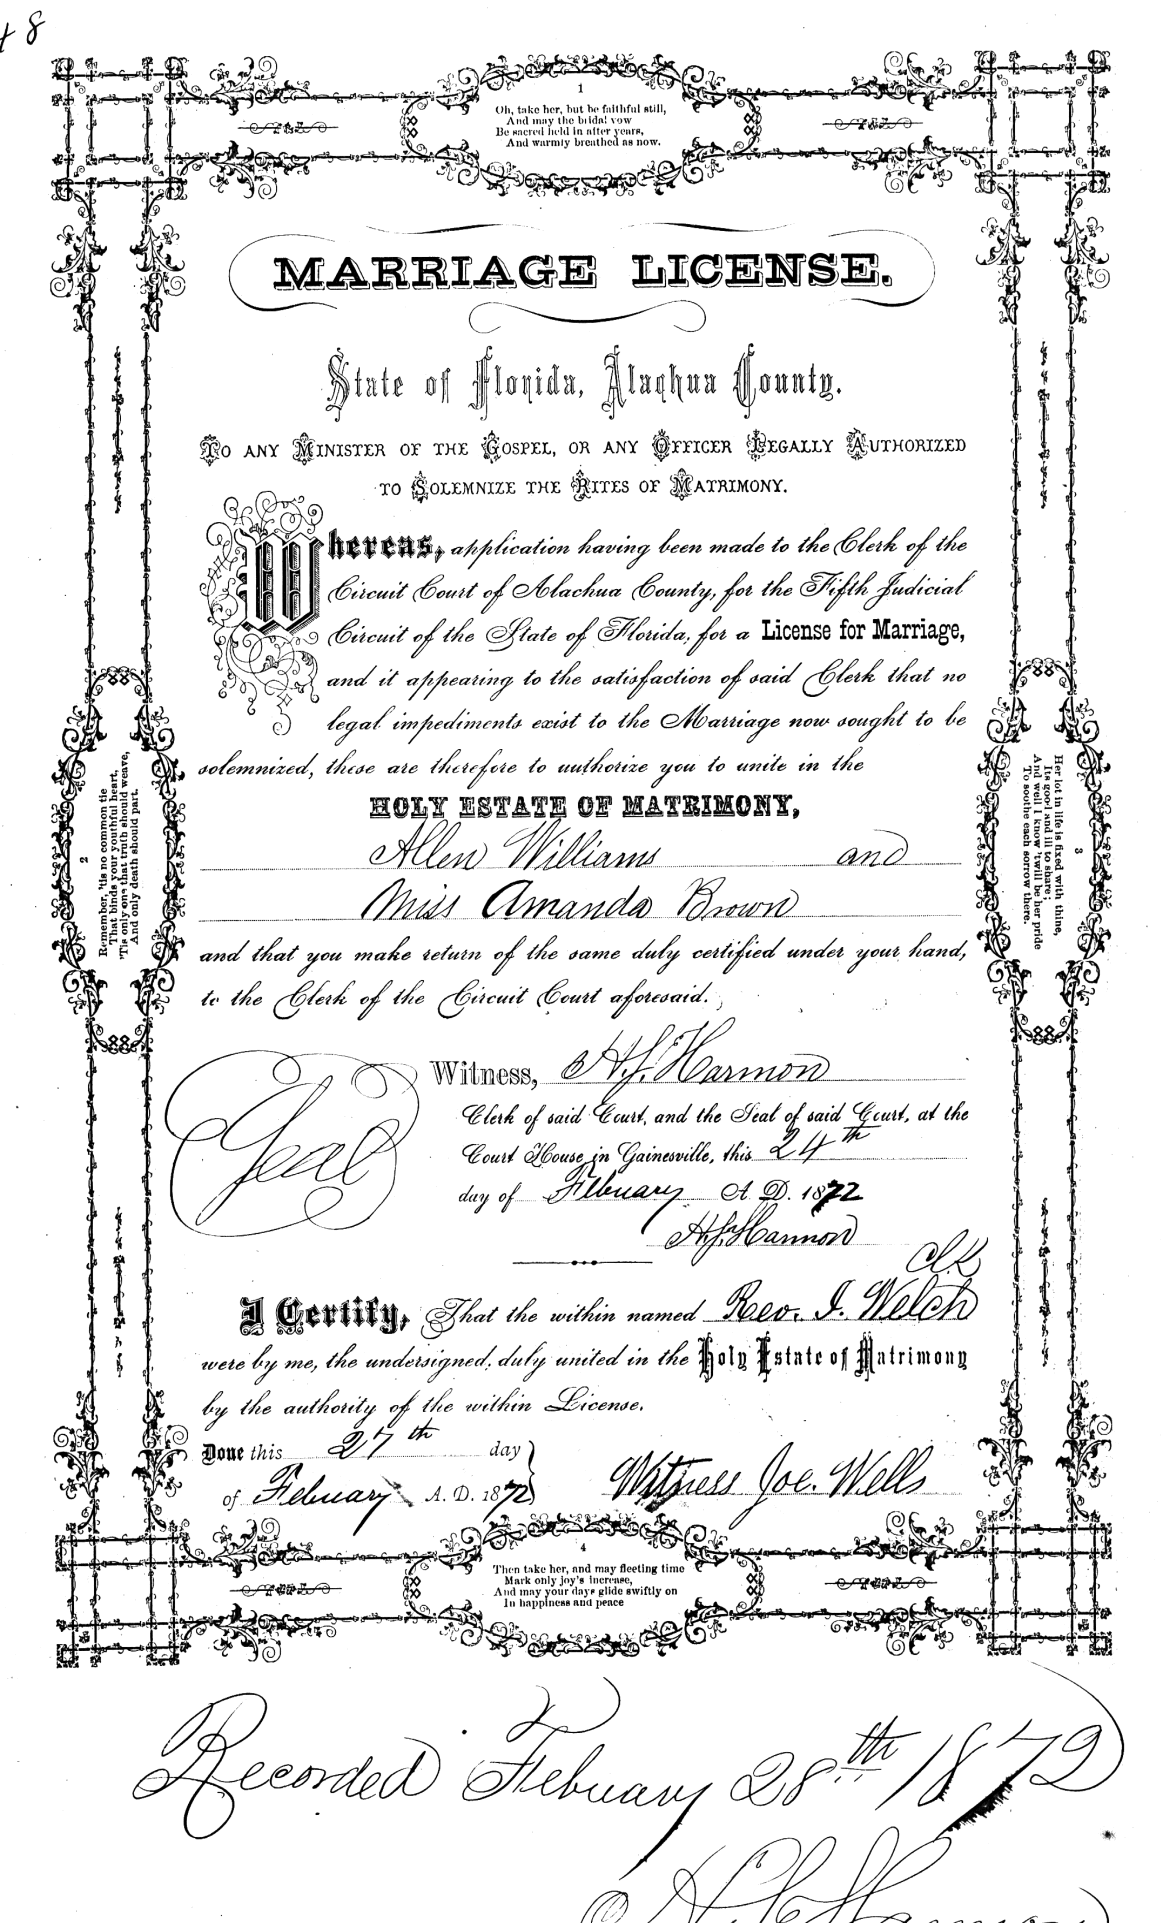 48
1
Oh, take her, but be faithful still,
And may the bridal vow
Be sacred held in after years,
And warmly breathed as now.
MARRIAGE LICENSE.
State of Florida, Alachua County.
TO ANY MINISTER OF THE GOSPEL, OR ANY OFFICER LEGALLY AUTHORIZED
TO SOLEMNIZE THE RITES OF MATRIMONY.
Whereas, application having been made to the Clerk of the
Circuit Court of Alachua County, for the Fifth Judicial
Circuit of the State of Florida, for a License for Marriage,
and it appearing to the satisfaction of said Clerk that no
legal impediments exist to the Marriage now sought to be
solemnized, these are therefore to authorize you to unite in the
HOLY ESTATE OF MATRIMONY,
Allen Williams and
Miss Amanda Brown
and that you make return of the same duly certified under your hand,
to the Clerk of the Circuit Court aforesaid.
2
Remember, 'tis no common tie
That binds your youthful heart,
'Tis only one that truth should weave,
And only death should part.
3
Her lot in life is fixed with thine,
Its good and ill to share;
And well I know 'twill be her pride
To soothe each sorrow there.
Seal
Witness, H.S. Harmon
Clerk of said Court, and the Seal of said Court, at the
Court House in Gainesville, this 24th
day of Febuary A. D. 1872
H.S. Harmon
Clk
I Certify, That the within named Rev. I. Welch
were by me, the undersigned, duly united in the Holy Estate of Matrimony
by the authority of the within License.
Done this 27th day
of Febuary A. D. 1872
Witness Joe. Wells
4
Then take her, and may fleeting time
Mark only joy's increase,
And may your days glide swiftly on
In happiness and peace
Recorded Febuary 28th 1872
H S Harmon